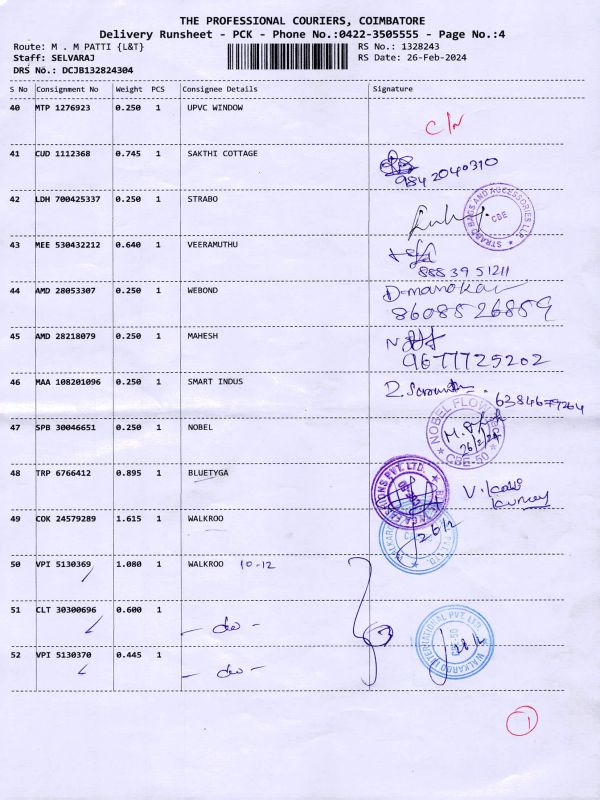 THE PROFESSIONAL COURIERS, COIMBATORE
Delivery Runsheet - PCK - Phone No.:0422-3505555 - Page No.:4
Route: M . M PATTI {L&T} RS No.: 1328243
Staff: SELVARAJ RS Date: 26-Feb-2024
DRS No.: DCJB132824304
S No Consignment No Weight PCS Consignee Details Signature
40 MTP 1276923 0.250 1 UPVC WINDOW
C/N
41 CUD 1112368 0.745 1 SAKTHI COTTAGE
9842040310
42 LDH 700425337 0.250 1 STRABO
STRABO BAGS AND ACCESSORIES LLP CBE
43 MEE 530432212 0.640 1 VEERAMUTHU
88839 51211
44 AMD 28053307 0.250 1 WEBOND D-manokar
8608526859
45 AMD 28218079 0.250 1 MAHESH
9677725202
46 MAA 108201096 0.250 1 SMART INDUS
6384679264
47 SPB 30046651 0.250 1 NOBEL
NOBEL FLOW CBE-50
26/2/24
48 TRP 6766412 0.895 1 BLUETYGA
FASHIONS PVT. LTD.
49 COK 24579289 1.615 1 WALKROO
26/2
50 VPI 5130369 1.080 1 WALKROO 10-12
51 CLT 30300696 0.600 1
- do -
52 VPI 5130370 0.445 1
- do -
WALKAROO INTERNATIONAL PVT. LTD. CBE-50
1